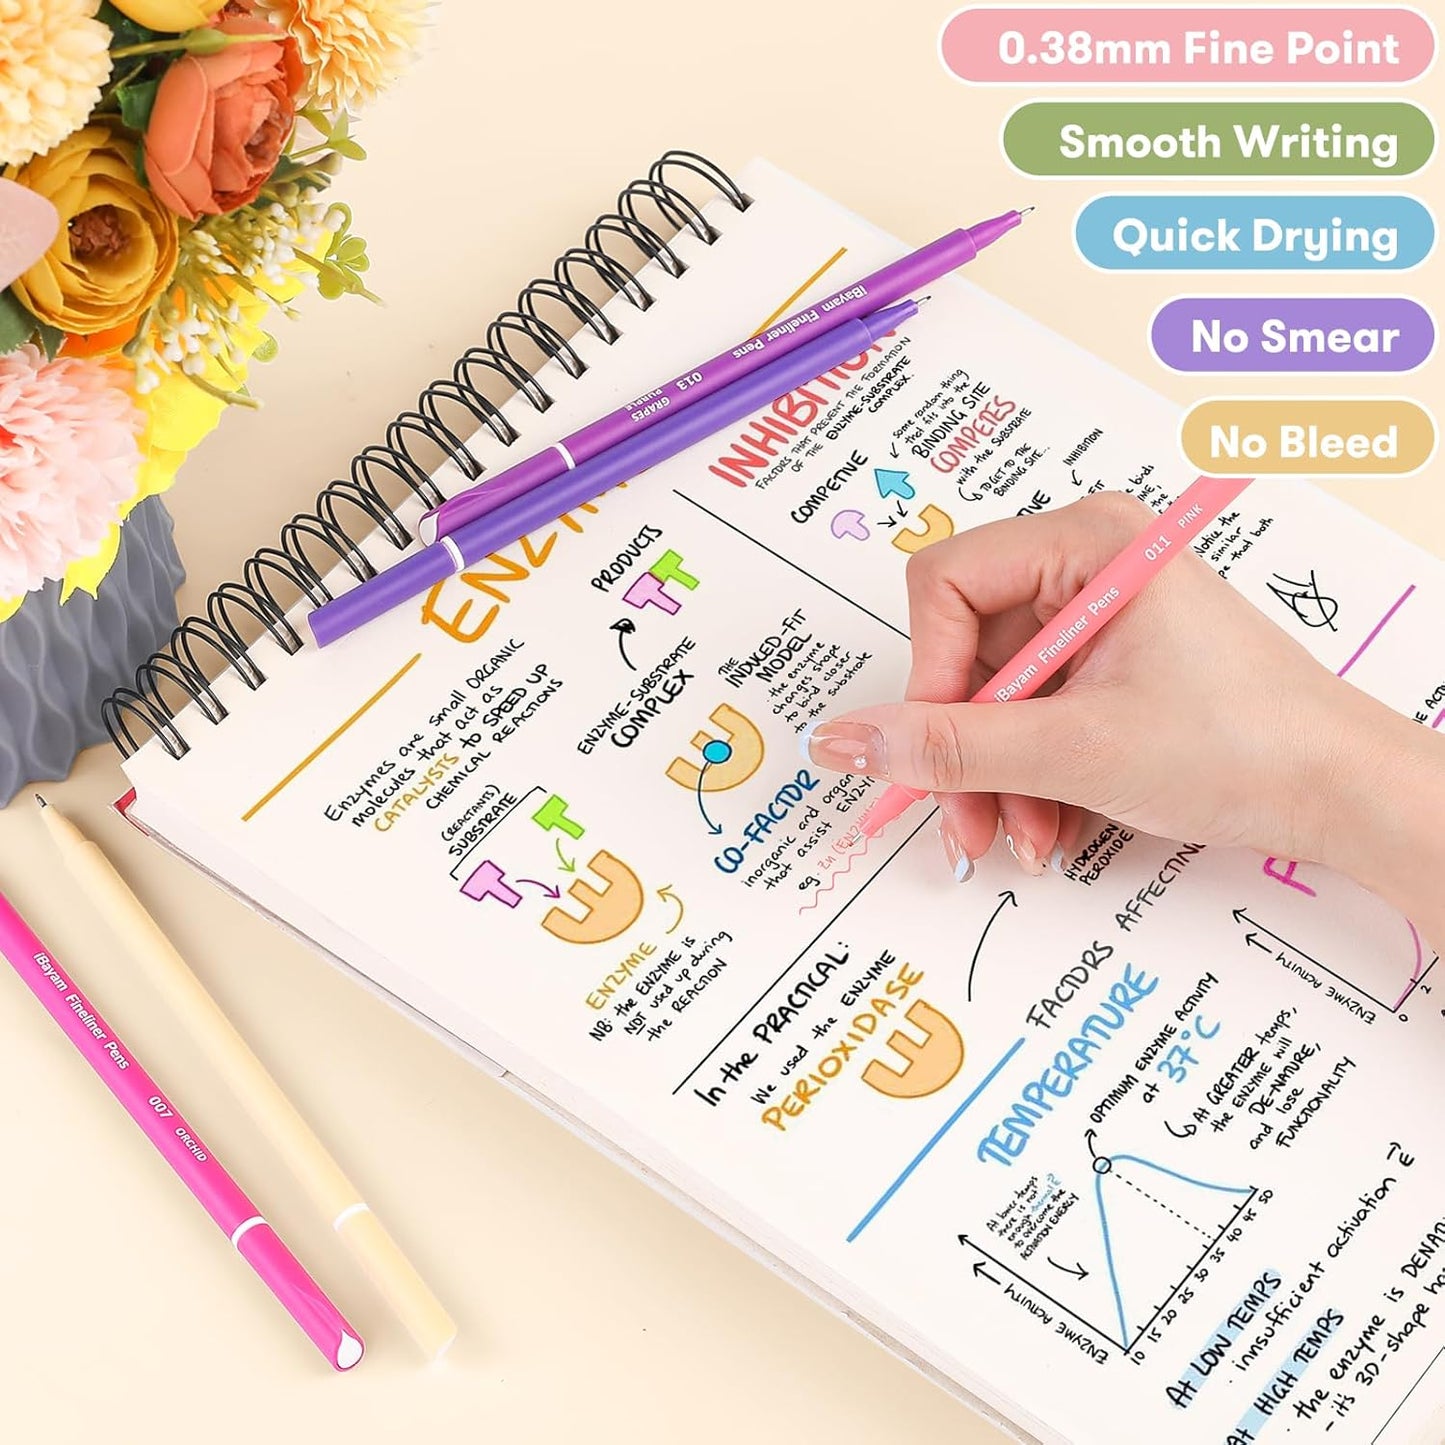 0.38mm Fine Point
Smooth Writing
Quick Drying
No Smear
No Bleed
iBayam Fineliner Pens
013
GRAPES
PURPLE
iBayam Fineliner Pens
011
PINK
iBayam Fineliner Pens
007
ORCHID
Enzymes are small ORGANIC
molecules that act as
CATALYSTS to SPEED UP
CHEMICAL REACTIONS
(REACTANTS)
SUBSTRATE
ENZYME
NB: the ENZYME is
NOT used up during
the REACTION
PRODUCTS
ENZYME-SUBSTRATE
COMPLEX
THE
INDUCED-FIT
MODEL
the enzyme
changes shape
to bind closer
to the substrate
CO-FACTOR
inorganic and organ
that assist ENZY
eg: Zn (ENZ
INHIBITION
FACTORS THAT PREVENT THE FORMATION
OF THE ENZYME-SUBSTRATE
COMPLEX.
COMPETIVE
some random thing
that fits into the
BINDING SITE
COMPETES
with the SUBSTRATE
TO GET TO THE
BINDING SITE...
INHIBITION
Notice the
similar
pe that both
In the PRACTICAL:
We used the ENZYME
PERIOXIDASE
HYDROGEN
PEROXIDE
FACTORS AFFECTING
TEMPERATURE
OPTIMUM ENZYME ACTIVITY
at 37°C
At GREATER temps,
the ENZYME will
DE-NATURE,
and lose
FUNCTIONALITY
At lower temps
there is not
enough thermal E
to overcome the
ACTIVATION ENERGY
ENZYME ACTIVITY
10 15 20 25 30 35 40 45 50
ENZYME ACTIVITY
0 2
At LOW TEMPS
· innsufficient activation E
At HIGH TEMPS
· the enzyme is DENAT
- it's 3D-shape ha